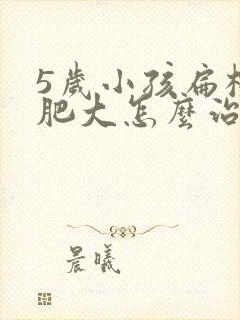 5歲小孩扁
肥大怎麼治
晨曦